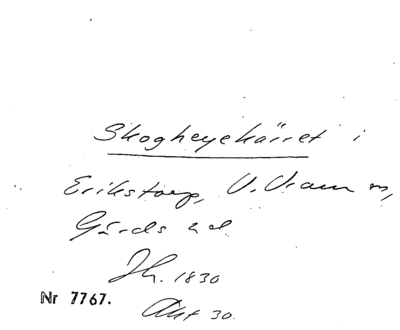 Skogheyekärret i
Erikstorp, V. Vram m,
Gärds hd.
Jh. 1830
Nr 7767.
Akt 30.